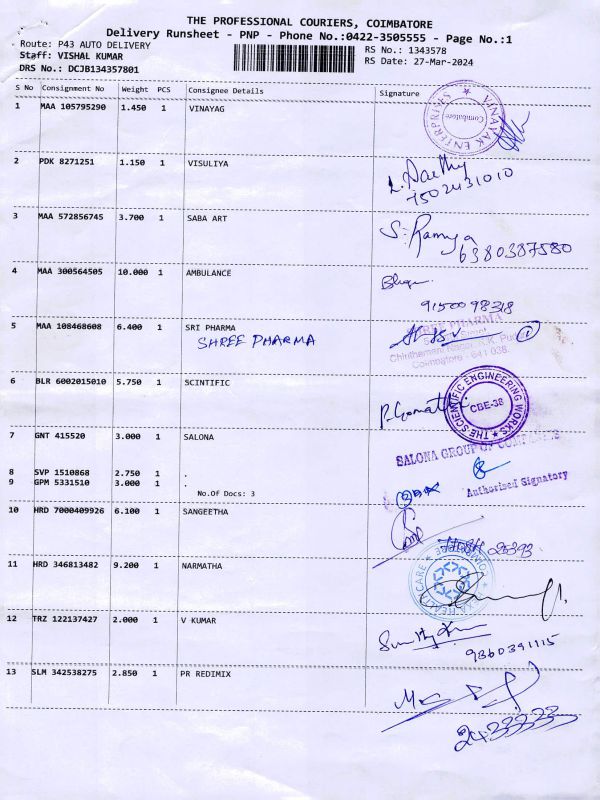 THE PROFESSIONAL COURIERS, COIMBATORE
Delivery Runsheet - PNP - Phone No.:0422-3505555 - Page No.:1
Route: P43 AUTO DELIVERY
RS No.: 1343578
Staff: VISHAL KUMAR
RS Date: 27-Mar-2024
DRS No.: DCJB134357801
S No Consignment No Weight PCS Consignee Details Signature
1 MAA 105795290 1.450 1 VINAYAG
VINAYAK ENTERPRISES ★ Coimbatore
2 PDK 8271251 1.150 1 VISULIYA
7502431010
3 MAA 572856745 3.700 1 SABA ART
S. Ramya
6380387580
4 MAA 300564505 10.000 1 AMBULANCE
9150098318
5 MAA 108468608 6.400 1 SRI PHARMA
SHREE PHARMA
SHREE PHARMA
Coimbatore - 641 038.
1
6 BLR 6002015010 5.750 1 SCINTIFIC
P. Gomathi
★ THE SCIENTIFIC ENGINEERING WORKS ★ CBE-38
7 GNT 415520 3.000 1 SALONA
SALONA GROUP OF COMPANIES
8 SVP 1510868 2.750 1 .
9 GPM 5331510 3.000 1 .
Authorised Signatory
No.Of Docs: 3
10 HRD 7000409926 6.100 1 SANGEETHA
11 HRD 346813482 9.200 1 NARMATHA
12 TRZ 122137427 2.000 1 V KUMAR
9360391115
13 SLM 342538275 2.850 1 PR REDIMIX